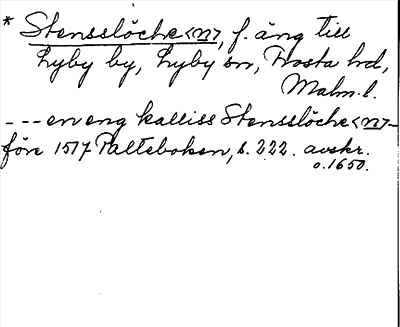 * Stensslöche<n>, f. äng till
Lyby by, Lyby sn, Frosta hd,
Malm.l.
--- en eng kalliss Stensslöche<n>-
före 1517 Palteboken, s. 222. avskr.
o.1650.